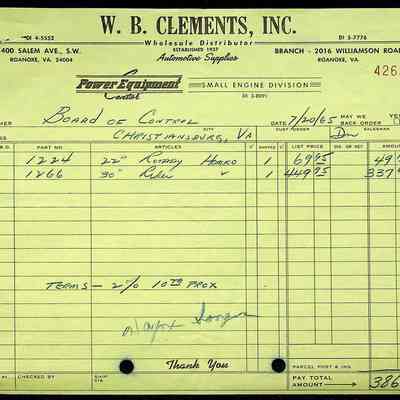 W. B. CLEMENTS, INC.
DI 4-5552 Wholesale Distributor DI 3-7776
ESTABLISHED 1927
400 SALEM AVE., S.W. Automotive Supplies BRANCH - 2016 WILLIAMSON ROA
ROANOKE, VA. 24004 ROANOKE, VA.
426
Power Equipment Central SMALL ENGINE DIVISION
DI 3-8091
MER BOARD OF CONTROL 7/20/65 MAY WE
CITY CUST. ORDER SALESMAN
CHRISTIANSBURG, VA
PART NO ARTICLES SHIPPED LIST PRICE DIS. OR NET AMOUNT
1224 22" ROTARY HOMKO 1 69.95 49
1266 30" Rider " 1 449.95 337
TERMS - 2% 10TH PROX
Thank You
PARCEL POST & INS.
FILLED BY CHECKED BY SHIP VIA PAY TOTAL AMOUNT 386